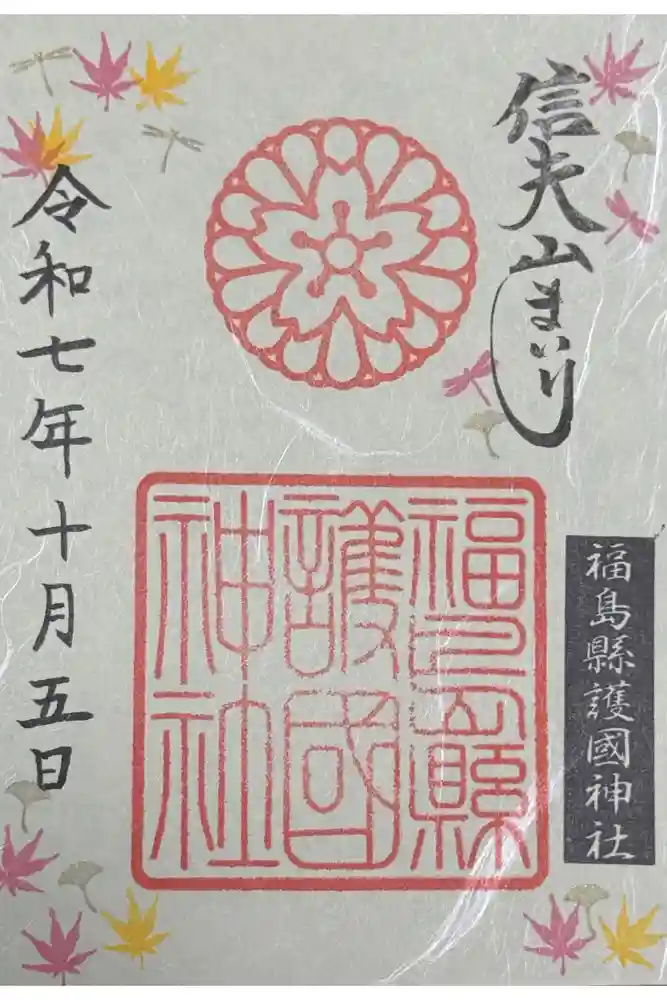 信夫山まいり
福島縣護國神社
福島縣護國神社
令和七年十月五日